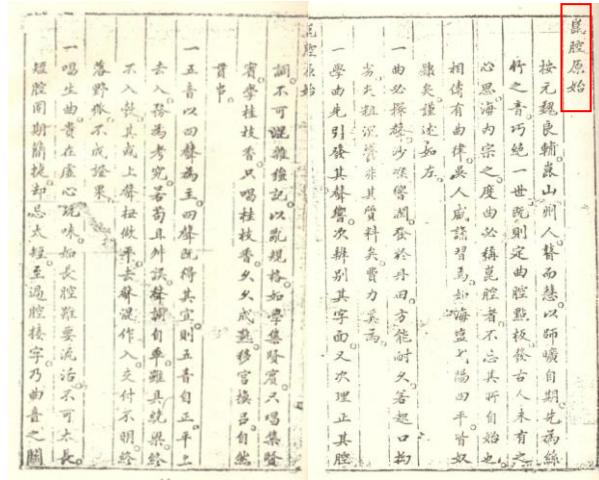 崑腔原始
按元魏良輔崑山州人瞽而慧以師曠自期先為絲
竹之音巧絕一世既則定曲腔點板發古人未有之
心思海內宗之度曲必稱崑腔者不忘其所自始也
相傳有曲律吳人咸諳習焉如海鹽弋陽四平皆奴
隸矣謹述如左
一曲必擇聲沙喉響潤發於丹田方能耐久若起口拗
劣尖粗沉濁非其質料矣費力奚為
一學曲先引發其聲響次辨別其字面又次理正其腔
崑腔原始
調不可混雜強記以亂規格如學集賢賓只唱集賢
賓學桂枝香只唱桂枝香久久成熟移宮換呂自然
貫串
一五音以四聲為主四聲既得其宜則五音自正平上
去入務為考究若苟且舛誤聲調自乖雖具繞梁終
不入彀其或上聲扭做平去聲混作入交付不明終
落野狐不成證果
一唱生曲貴在虛心玩味如長腔雖要流活不可太長
短腔固期簡捷却忌太短至過腔接字乃曲音之關